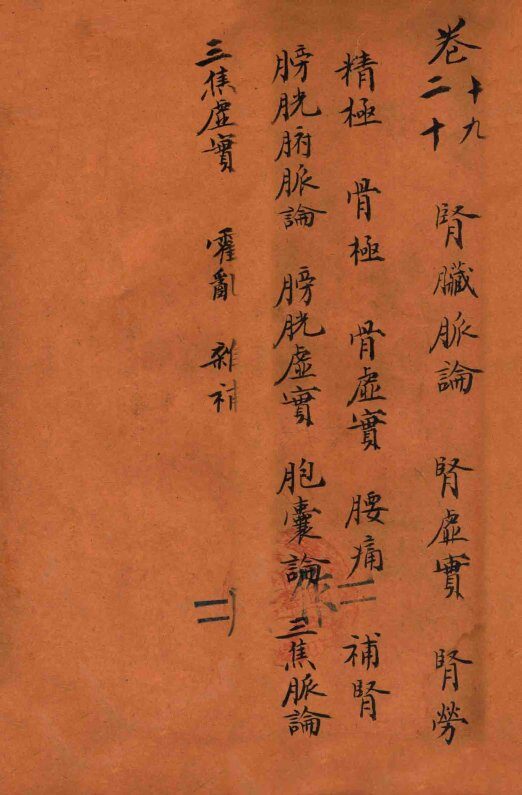 卷十九二十 腎臟脈論 腎虛實 腎勞
精極 骨極 骨虛實 腰痛 補腎
膀胱腑脈論 膀胱虛實 胞囊論 三焦脈論
三焦虛實 霍亂 雜補
二
二